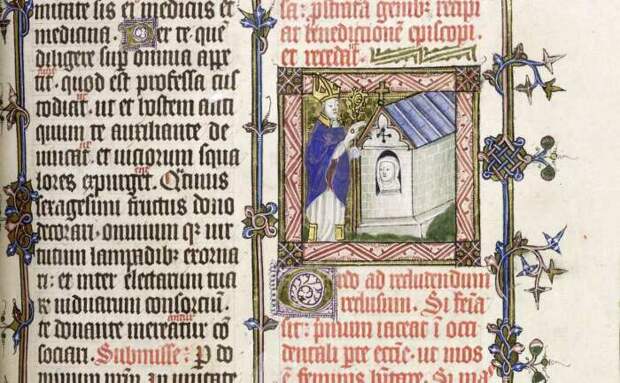 mitate sis et medicus et
medicina. Per te que
diligere sup omnia appe
tit. quod est professa cus
todiat. ut et hostem anti
quum te auxiliante de
uincat. et uiciorum squa
lores expurget. Qtinus
sexagesimi fructus dono
decorari. omnium q uir
tutum lampadibus exorna
ri: et inter electarum tua
uiduarum consorciū
te donante mereatur cō
sociari. Submisse: P do
minum nrm. in unitate
sa. pstrata genibz recipi
at benedictionē episcopi.
et recedat.
Ordo ad recludendum
reclusum. Si
primum iaceat ī occi
dentali pte eccē. ut mos
ē feminis habitare. Si ma